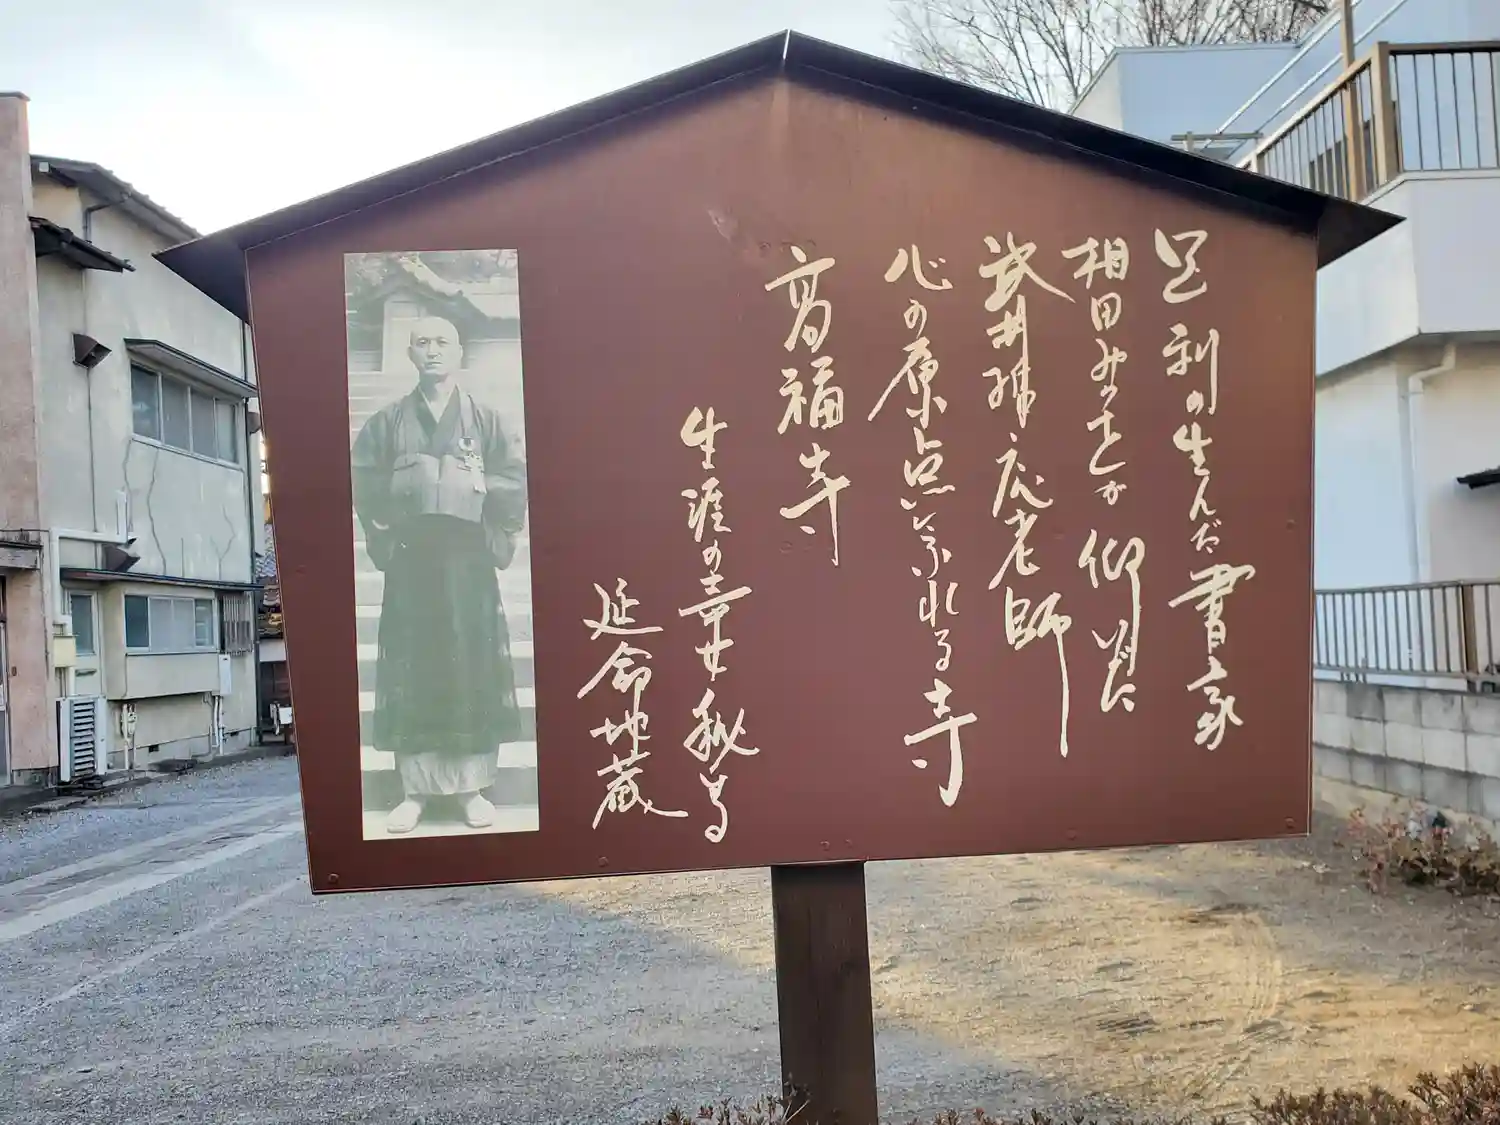 足利の生んだ書家
相田みつをが仰いだ
武井哲応老師
心の原点がふれる寺
高福寺
生涯の幸せ秘める
延命地蔵